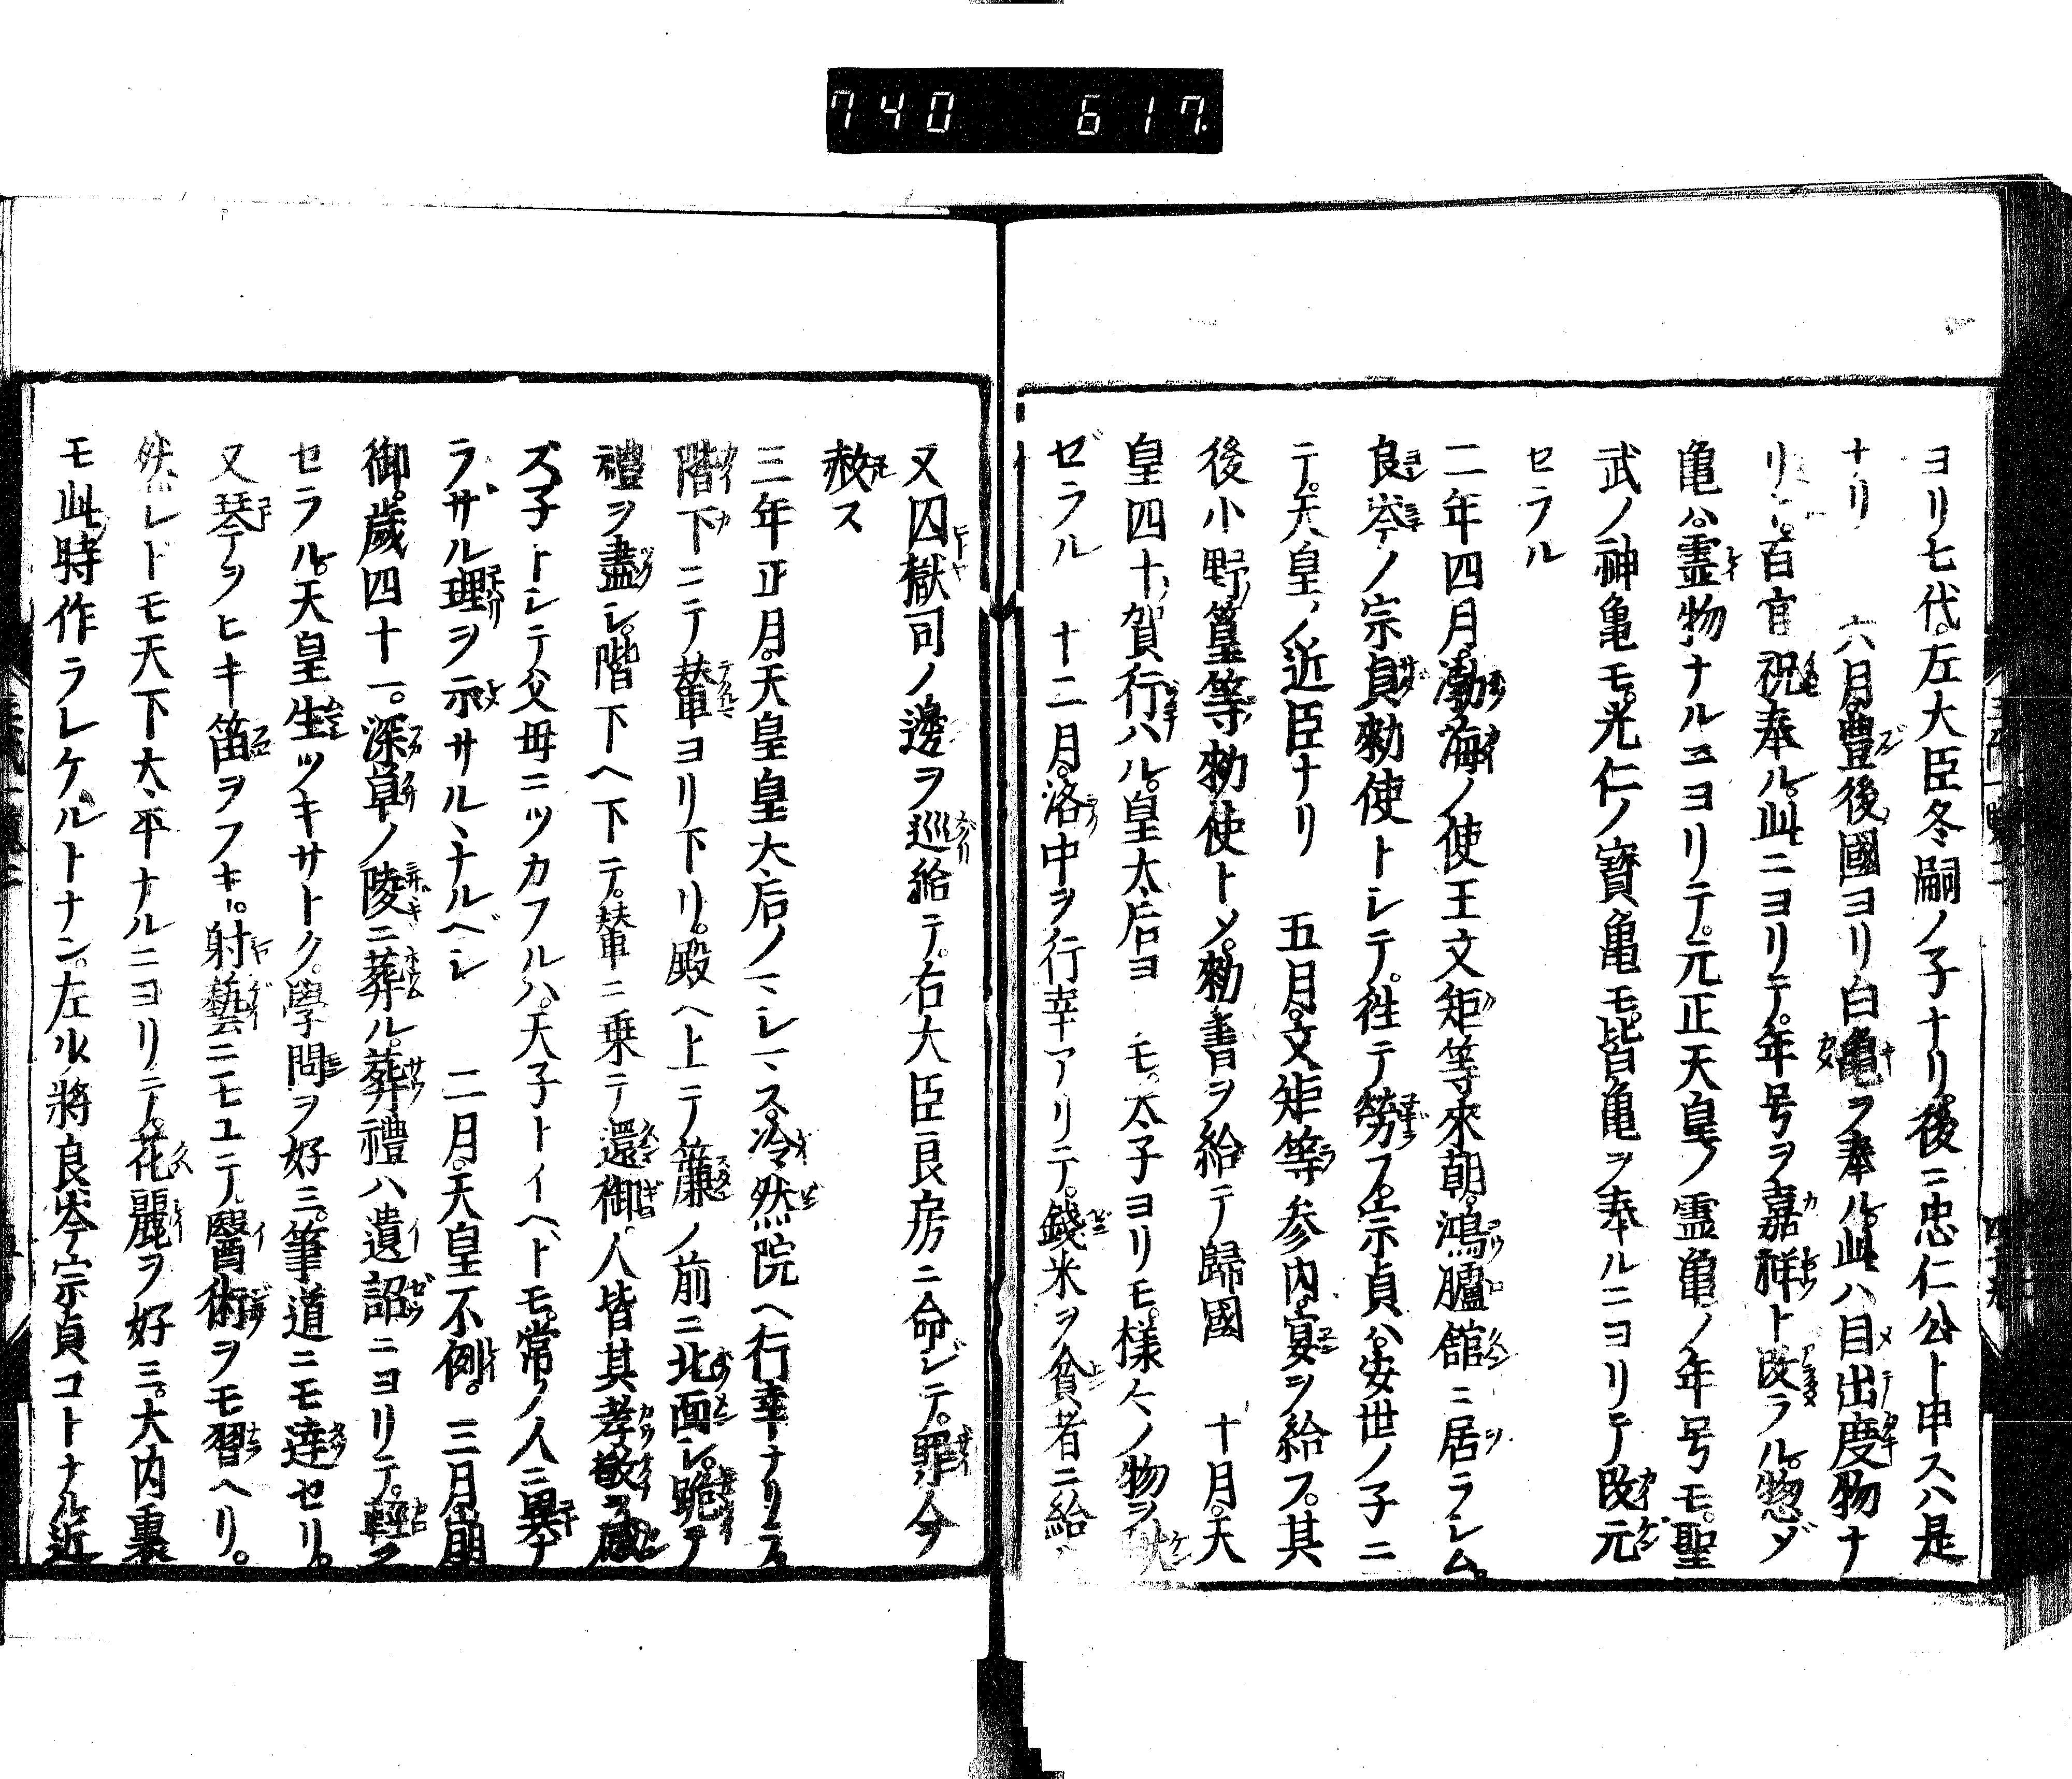 740 617.
ヨリ七代。左大臣冬嗣ノ子ナリ。後ニ忠仁公ト申スハ是
ナリ 六月。豊後國ヨリ白亀ヲ奉ル。此ハ目出度物ナ
リト。百官祝奉ル。此ニヨリテ。年号ヲ嘉祥ト改ラル。惣ジ
亀ハ。霊物ナルニヨリテ。元正天皇ノ霊亀ノ年号モ。聖
武ノ神亀モ。光仁ノ寳亀モ。皆亀ヲ奉ルニヨリテ改元
セラル
二年四月。渤海ノ使王文矩等來朝。鴻臚舘ニ居ラシム。
良岑ノ宗貞勅使トシテ。徃テ勞フ。宗貞ハ。安世ノ子ニ
テ。天皇ノ近臣ナリ 五月。文矩等参内。宴ヲ給フ。其
後小野篁等勅使トメ。勅書ヲ給テ歸國 十月。天
皇四十ノ賀行ハル。皇太后ヨ モ。太子ヨリモ。様々ノ物ヲ献
ゼラル 十二月。洛中ヲ行幸アリテ。錢米ヲ貧者ニ給ハ
又囚獄司ノ邊ヲ巡給テ。右大臣良房ニ命ジテ。罪人ヲ
赦ス
三年正月。天皇皇太后ノマシマス。冷然院ヘ行幸ナリテ。
階下ニテ輦ヨリ下リ。殿ヘ上テ簾ノ前ニ北面シ。跪テ
禮ヲ盡シ。階下ヘ下テ。輦ニ乗テ還御。人皆其孝敬ヲ感
ズ。子トシテ父母ニツカフルハ。天子トイヘトモ。常ノ人ニ異ナ
ラザル理ヲ示サルヽナルベシ 二月。天皇不例。三月崩
御。歳四十一。深草ノ陵ニ葬ル。葬禮ハ遺詔ニヨリテ。輕ク
セラル。天皇生ツキサトク。學問ヲ好ミ。筆道ニモ達セリ。
又琴ヲヒキ笛ヲフキ。射藝ニモユテ。醫術ヲモ習ヘリ。
然レドモ天下太平ナルニヨリテ。花麗ヲ好ミ。大内裏
モ此時作ラレケルトナン。左少將良岑宗貞コトナル近